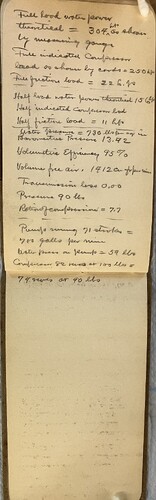 Full load water power
theoretical = 304. as above
by measuring gauge
Full indicated Compressor
Load as shown by cards = 250
Full friction load = 22
Half load water power theoretical 15
Half indicated Compressor load
Half friction load = 11
Water Pressure = 730
Barometric Pressure 13.92
Volumetric Efficiency 95%
Volume free air. 1912
Transmission loss 0.00
Pressure 90 lbs
Ratio of compression = 7.7
Pump running 71 strokes =
gallons per min
Water press on pump = 59 lbs
Compressor 82 revs at 100 lbs
74 revs at 90 lbs